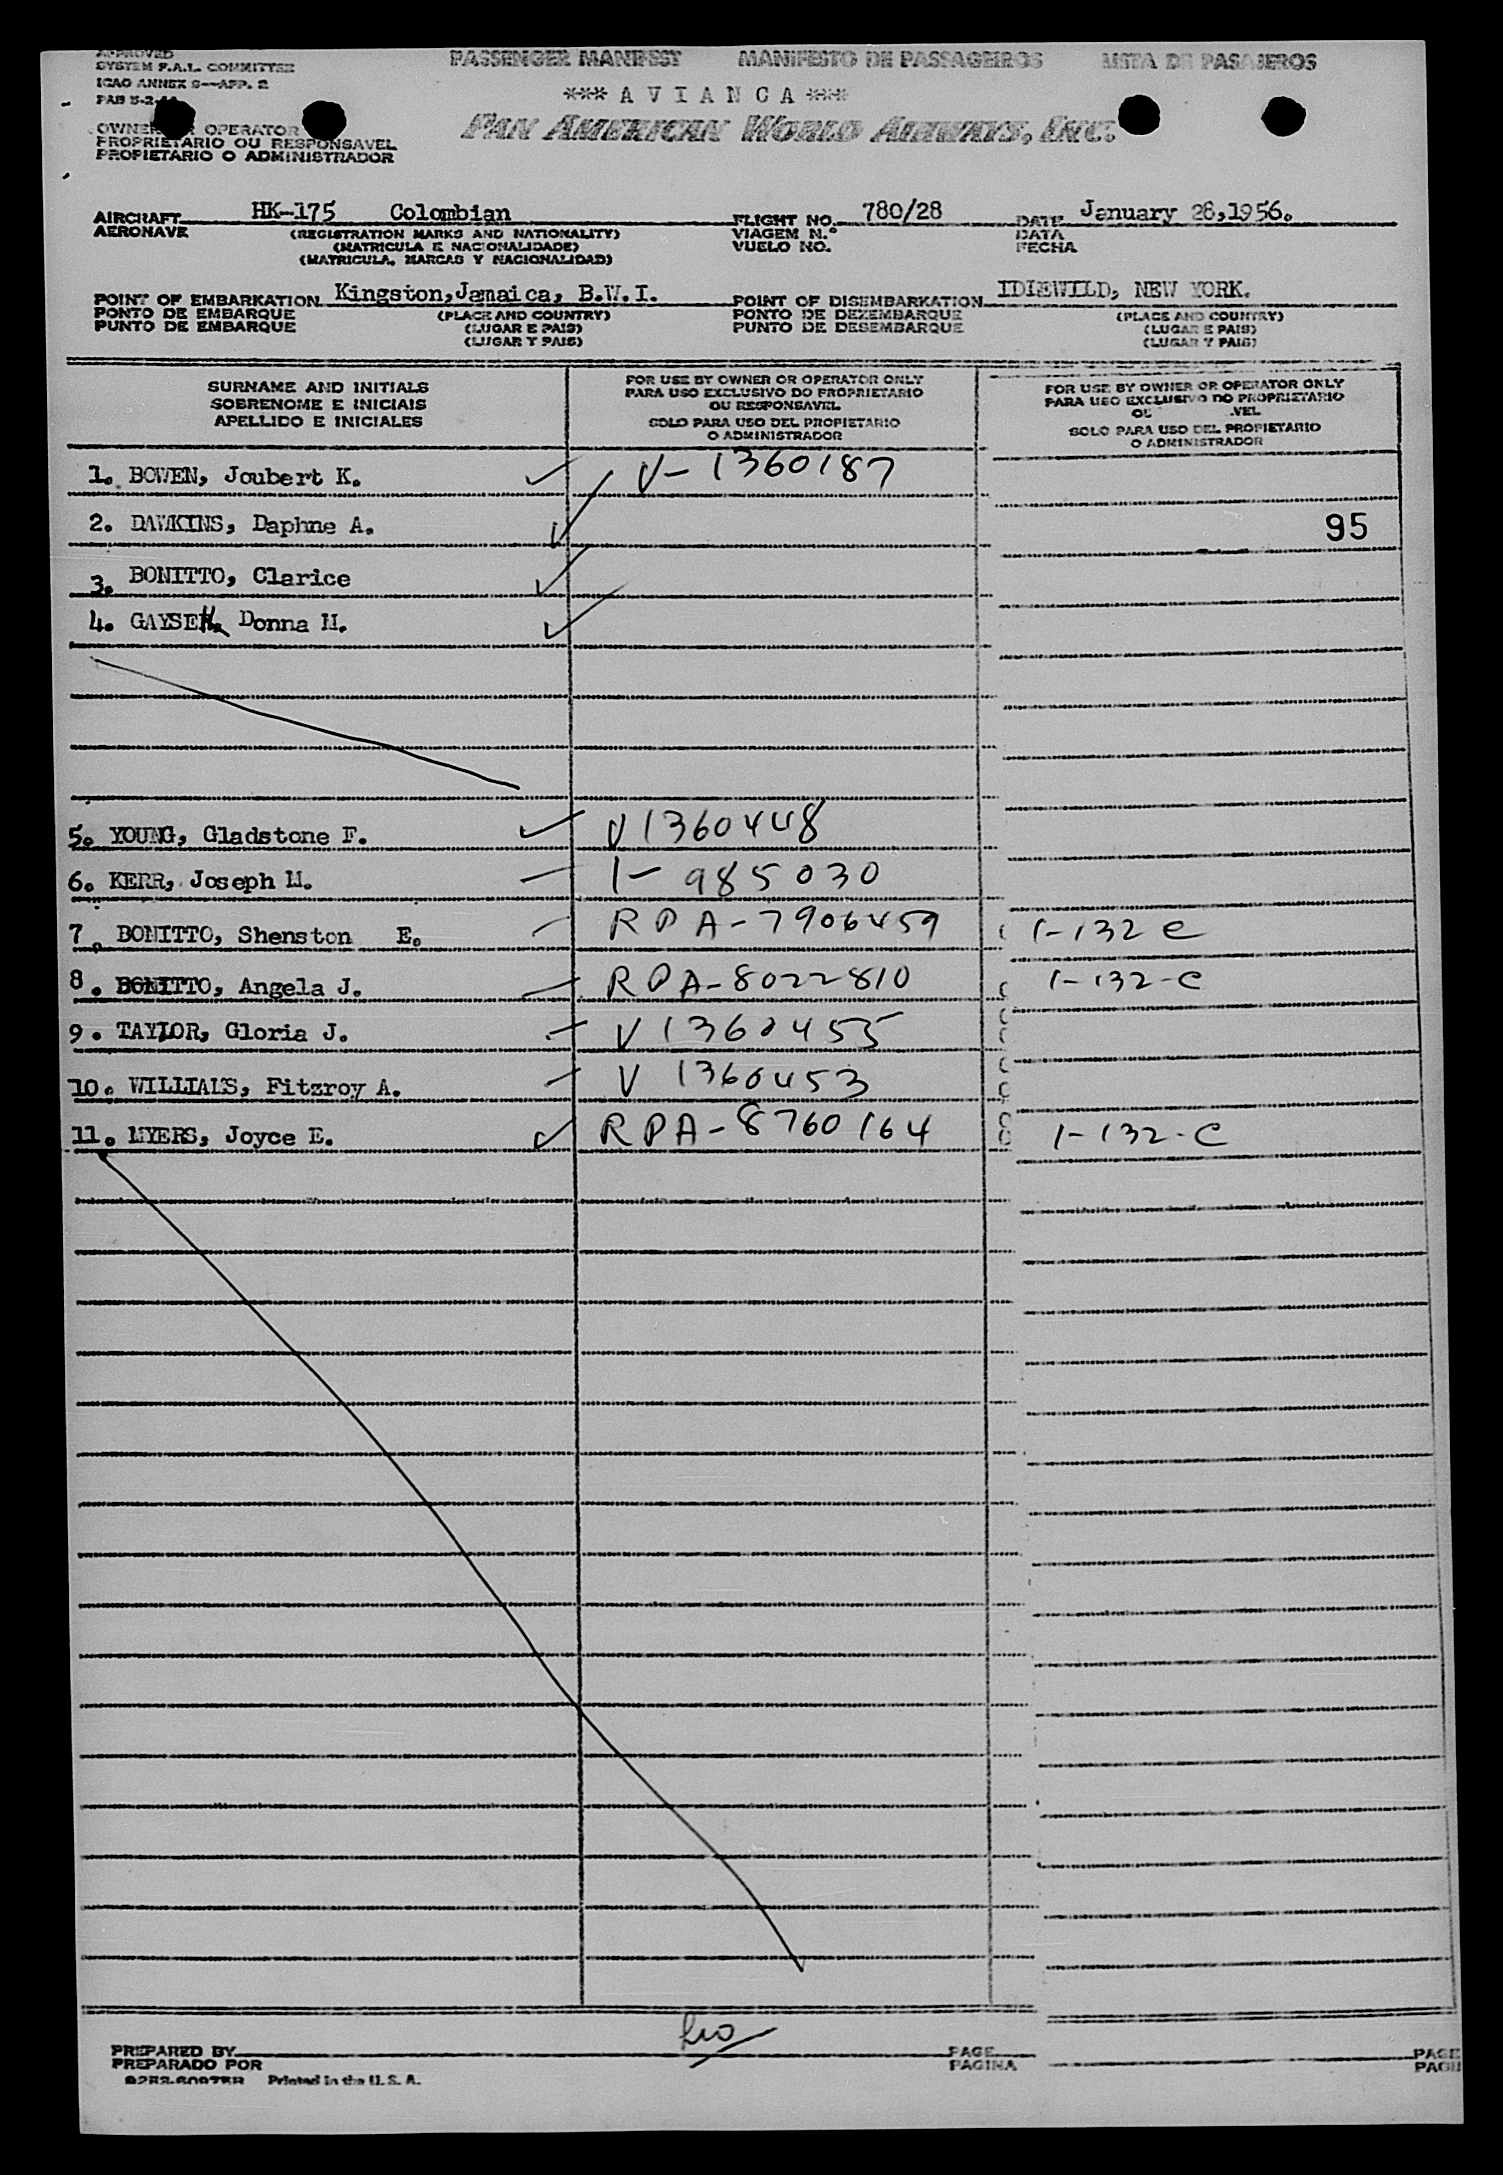 APPROVED
SYSTEM F.A.L. COMMITTEE
ICAO ANNEX 9—APP. 2
PAB 5-2-
PASSENGER MANIFEST MANIFESTO DE PASSAGEIROS LISTA DE PASAJEROS
*** A V I A N C A ***
PAN AMERICAN WORLD AIRWAYS, INC.
OWNER OR OPERATOR
PROPRIETARIO OU RESPONSAVEL
PROPIETARIO O ADMINISTRADOR
AIRCRAFT HK-175 Colombian FLIGHT NO. 780/28 DATE January 28,1956.
AERONAVE (REGISTRATION MARKS AND NATIONALITY) VIAGEM N.° DATA
(MATRICULA E NACIONALIDADE) VUELO NO. FECHA
(MATRICULA, MARCAS Y NACIONALIDAD)
POINT OF EMBARKATION Kingston,Jamaica, B.W.I. POINT OF DISEMBARKATION IDLEWILD, NEW YORK.
PONTO DE EMBARQUE (PLACE AND COUNTRY) PONTO DE DEZEMBARQUE (PLACE AND COUNTRY)
PUNTO DE EMBARQUE (LUGAR E PAIS) PUNTO DE DESEMBARQUE (LUGAR E PAIS)
(LUGAR Y PAIS) (LUGAR Y PAIS)
SURNAME AND INITIALS
SOBRENOME E INICIAIS
APELLIDO E INICIALES
FOR USE BY OWNER OR OPERATOR ONLY
PARA USO EXCLUSIVO DO PROPRIETARIO
OU RESPONSAVEL
SOLO PARA USO DEL PROPIETARIO
O ADMINISTRADOR
FOR USE BY OWNER OR OPERATOR ONLY
PARA USO EXCLUSIVO DO PROPRIETARIO
OU VEL
SOLO PARA USO DEL PROPIETARIO
O ADMINISTRADOR
1. BOWEN, Joubert K. V-1360187
2. DAWKINS, Daphne A. 95
3. BONITTO, Clarice
4. GAYSE Donna M.
5. YOUNG, Gladstone F. V1360448
6. KERR, Joseph M. 1-985030
7. BONITTO, Shenston E. RPA-7906459 1-132 C
8. BONITTO, Angela J. RPA-8022810 1-132-C
9. TAYLOR, Gloria J. V1360455
10. WILLIAMS, Fitzroy A. V 1360453
11. MYERS, Joyce E. RPA-8760164 1-132-C
PREPARED BY PAGE PAGE
PREPARADO POR PAGINA PAGI
Printed in the U.S.A.